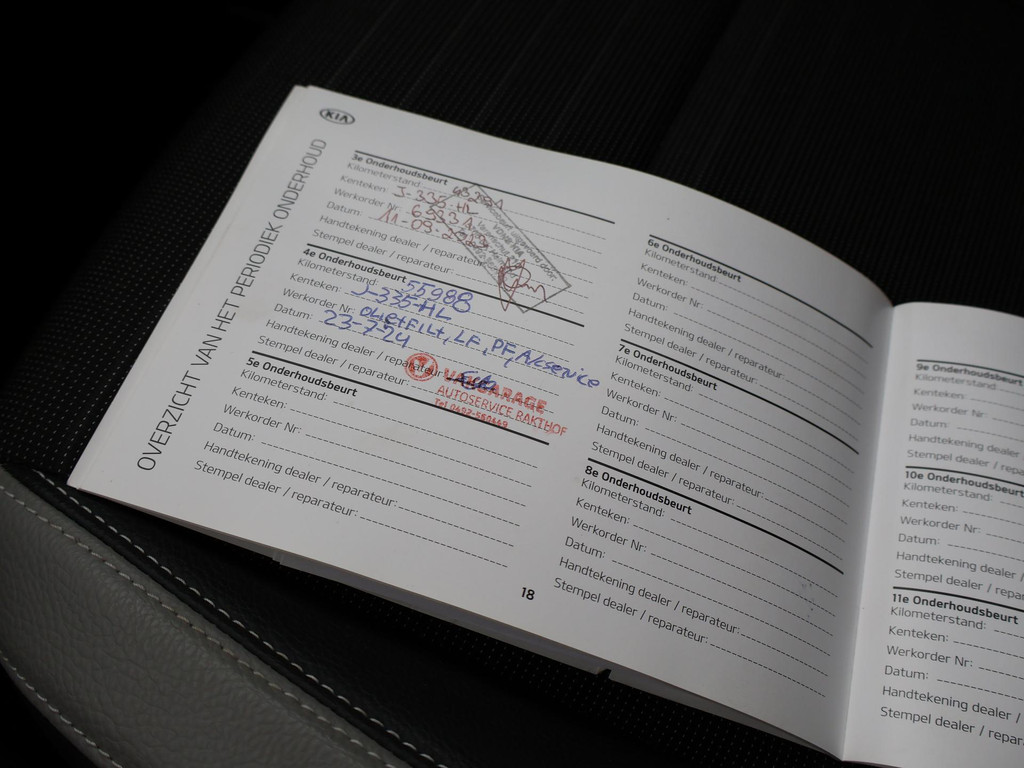 KIA
OVERZICHT VAN HET PERIODIEK ONDERHOUD
3e Onderhoudsbeurt
Kilometerstand:
Kenteken: J-335-HL
Werkorder Nr:
Datum: 11-09-2023
Handtekening dealer / reparateur:
Stempel dealer / reparateur:
4e Onderhoudsbeurt
Kilometerstand: 55988
Kenteken: J-335-HL
Werkorder Nr: olietfilt, LF, PF, Aircservice
Datum: 23-7-24
Handtekening dealer / reparateur:
Stempel dealer / reparateur:
VAKGARAGE
AUTOSERVICE RAKTHOF
5e Onderhoudsbeurt
Kilometerstand:
Kenteken:
Werkorder Nr:
Datum:
Handtekening dealer / reparateur:
Stempel dealer / reparateur:
18
6e Onderhoudsbeurt
Kilometerstand:
Kenteken:
Werkorder Nr:
Datum:
Handtekening dealer / reparateur:
Stempel dealer / reparateur:
7e Onderhoudsbeurt
Kilometerstand:
Kenteken:
Werkorder Nr:
Datum:
Handtekening dealer / reparateur:
Stempel dealer / reparateur:
8e Onderhoudsbeurt
Kilometerstand:
Kenteken:
Werkorder Nr:
Datum:
Handtekening dealer / reparateur:
Stempel dealer / reparateur:
9e Onderhoudsbeurt
Kilometerstand:
Kenteken:
Werkorder Nr:
Datum:
Handtekening dealer /
Stempel dealer / repa
10e Onderhoudsbeurt
Kilometerstand:
Kenteken:
Werkorder Nr:
Datum:
Handtekening dealer /
Stempel dealer / repa
11e Onderhoudsbeurt
Kilometerstand:
Kenteken:
Werkorder Nr:
Datum:
Handtekening dealer /
Stempel dealer / repar